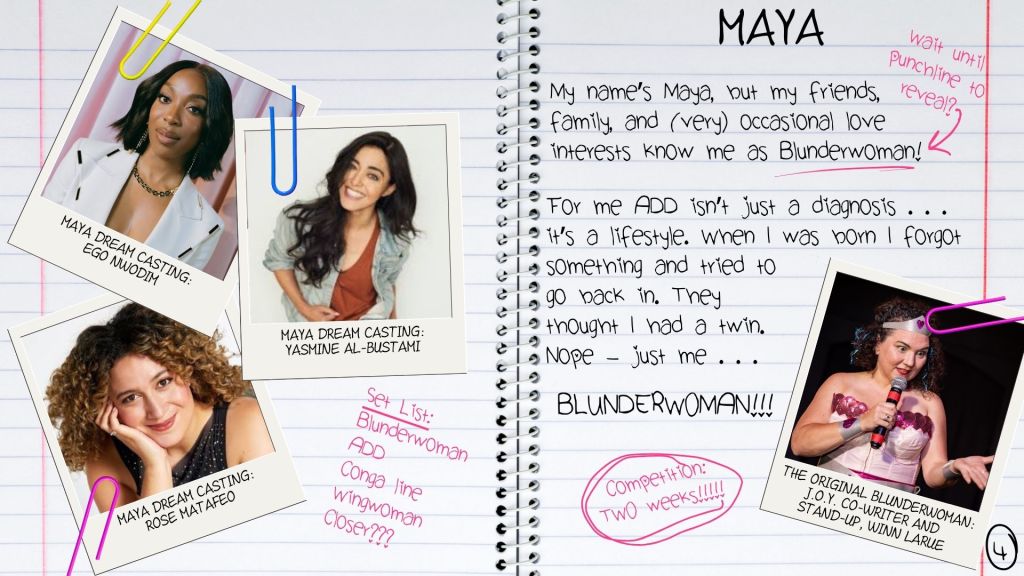 MAYA DREAM CASTING:
EGO NWODIM
MAYA DREAM CASTING:
YASMINE AL-BUSTAMI
MAYA DREAM CASTING:
ROSE MATAFEO
Set List:
Blunderwoman
ADD
Conga line
Wingwoman
Closer???
MAYA
Wait until
Punchline to
reveal?
My name's Maya, but my friends,
family, and (very) occasional love
interests know me as Blunderwoman!
For me ADD isn't just a diagnosis . . .
it's a lifestyle. When I was born I forgot
something and tried to
go back in. They
thought I had a twin.
Nope – just me . . .
BLUNDERWOMAN!!!
Competition:
TWO weeks!!!!!
THE ORIGINAL BLUNDERWOMAN:
J.O.Y. CO-WRITER AND
STAND-UP, WINN LARUE
4